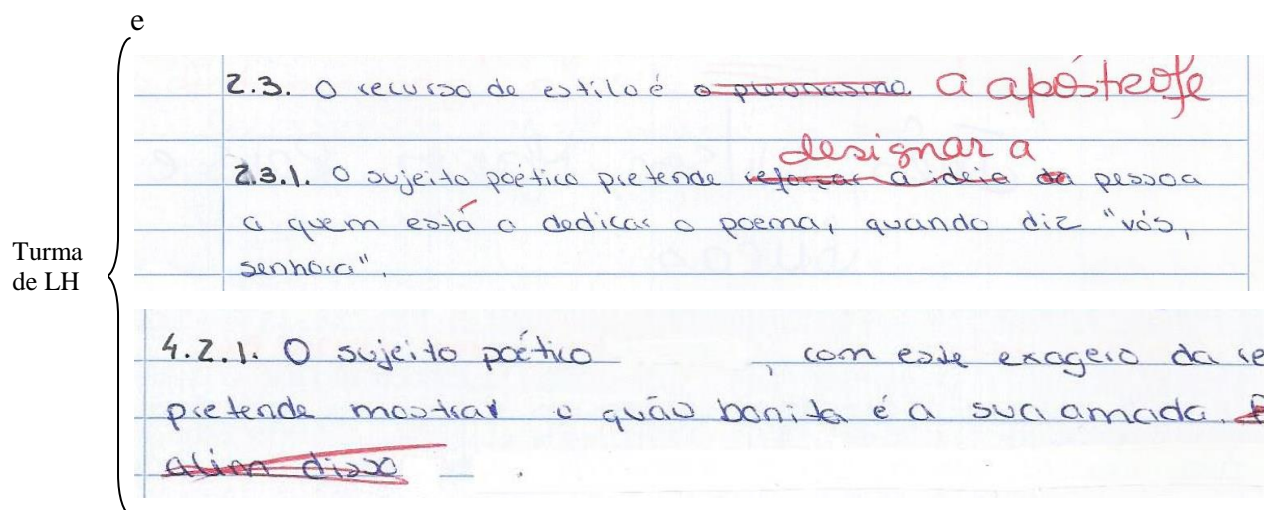 e
2.3. O recurso de estilo é o pleonasmo. a apóstrofe
designar a
2.3.1. O sujeito poético pretende reforçar a ideia da pessoa
a quem está a dedicar o poema, quando diz "vós,
senhora".
Turma
de LH
4.2.1. O sujeito poético , com este exagero da re
pretende mostrar o quão bonita é a sua amada.
além disso .